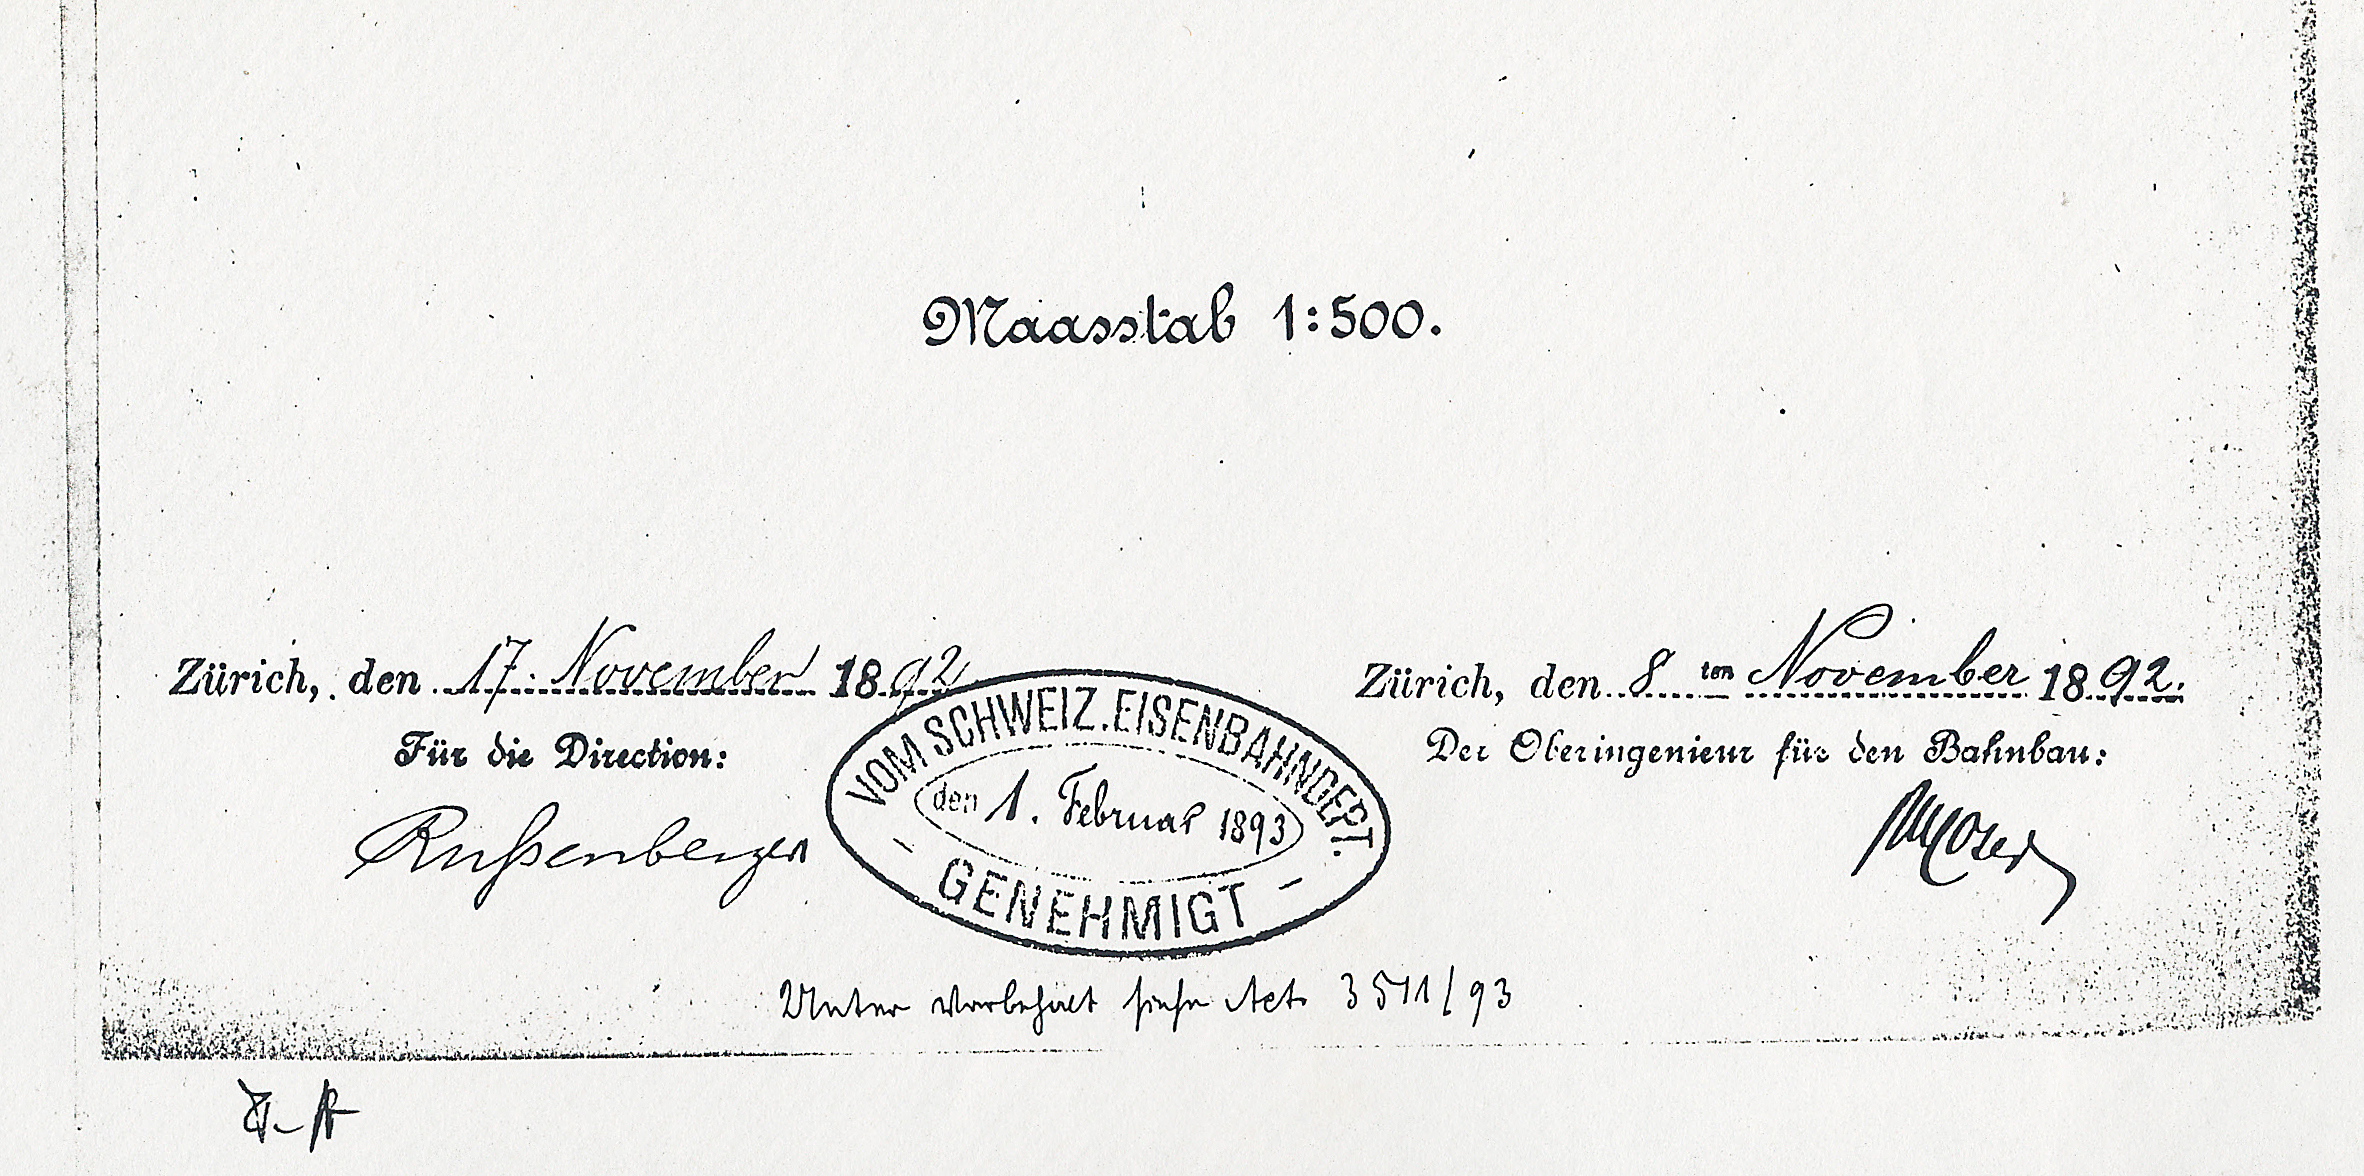 Maasstab 1:500.
Zürich, den 17. November 1892
Für die Direction:
Rußenberger
VOM SCHWEIZ. EISENBAHNDEPT.
den 1. Februar 1893
- GENEHMIGT -
Zürich, den 8 ten November 1892.
Der Oberingenieur für den Bahnbau:
Moser
Unter Vorbehalt siehe Act. 3511/93